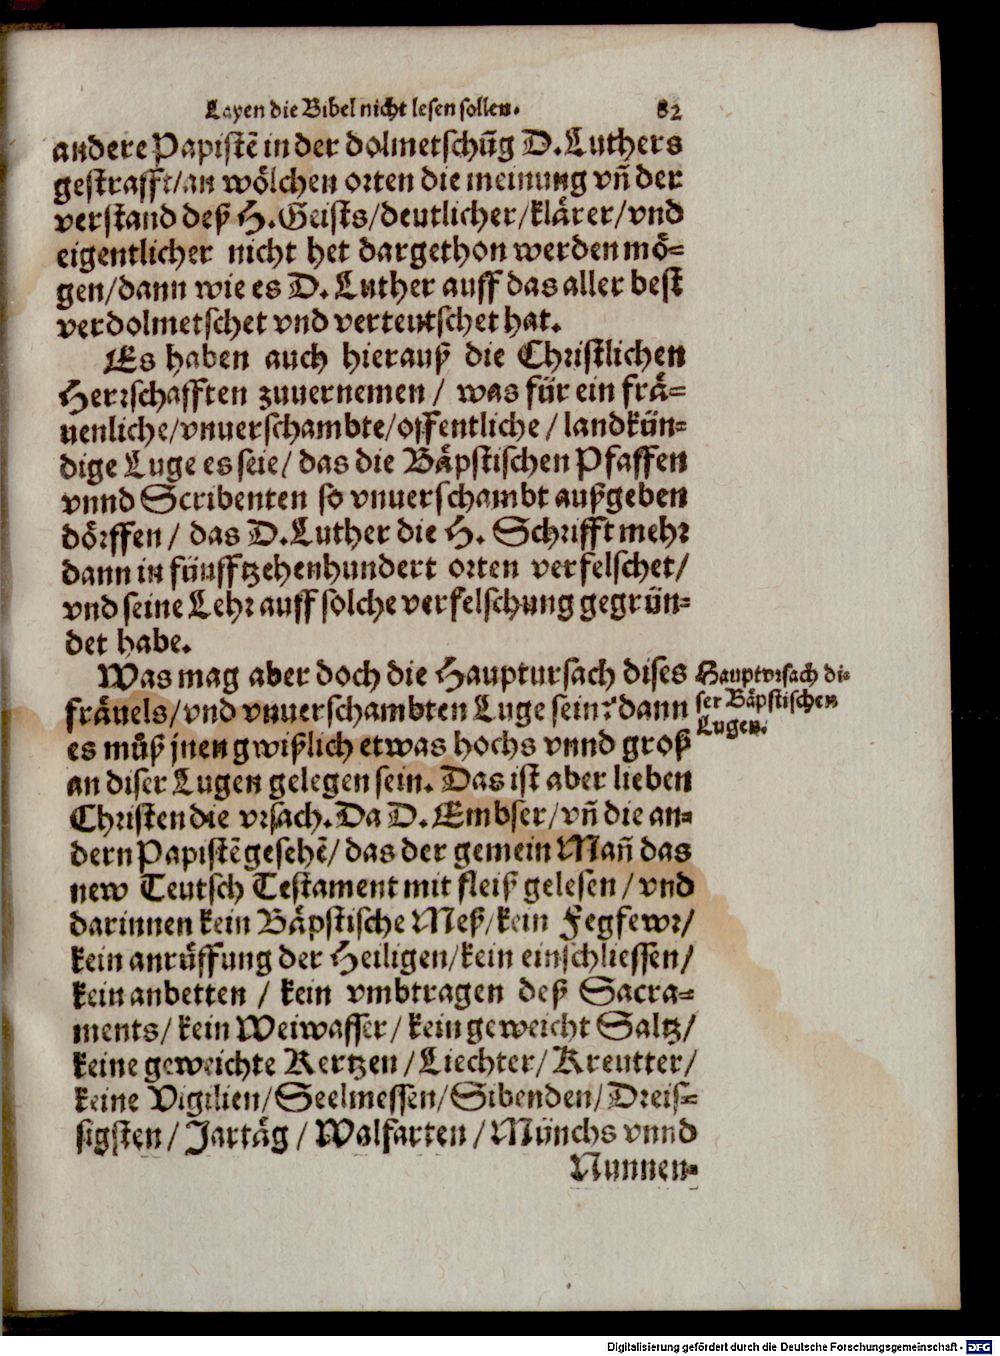 Layen die Bibel nicht lesen sollen. 82
andere Papistẽ in der dolmetschũg D. Luthers
gestrafft/an wölchen orten die meinung vñ der
verstand deß H. Geists/deutlicher/klärer/vnd
eigentlicher nicht het dargethon werden mö-
gen/dann wie es D. Luther auff das aller best
verdolmetschet vnd verteutschet hat.
Es haben auch hierauß die Christlichen
Herrschafften zuuernemen / was für ein frä-
uenliche/vnuerschambte/offentliche / landkün-
dige Luge es seie/ das die Bäpstischen Pfaffen
vnnd Scribenten so vnuerschambt außgeben
dörffen / das D. Luther die H. Schrifft mehr
dann in fünfftzehenhundert orten verfelschet/
vnd seine Lehr auff solche verfelschung gegrün-
det habe.
Was mag aber doch die Hauptursach dises
fräuels/vnd vnuerschambten Luge sein? dann
es müß jnen gwißlich etwas hochs vnnd groß
an diser Lugen gelegen sein. Das ist aber lieben
Christen die vrsach. Da D. Embser/vñ die an-
dern Papistẽ gesehẽ/ das der gemein Mañ das
new Teutsch Testament mit fleiß gelesen / vnd
darinnen kein Bäpstische Meß/kein Fegfewr/
kein anrüffung der Heiligen/kein einschliessen/
kein anbetten / kein vmbtragen deß Sacra-
ments/ kein Weiwasser/ kein geweicht Saltz/
keine geweichte Kertzen /Liechter/ Kreutter/
keine Vigilien/Seelmessen/Sibenden/Dreis-
sigsten/ Jartäg / Walfarten / Münchs vnnd
Nunnen-
Hauptvrsach di-
ser Bäpstischen
Lugen.
Digitalisierung gefördert durch die Deutsche Forschungsgemeinschaft - DFG